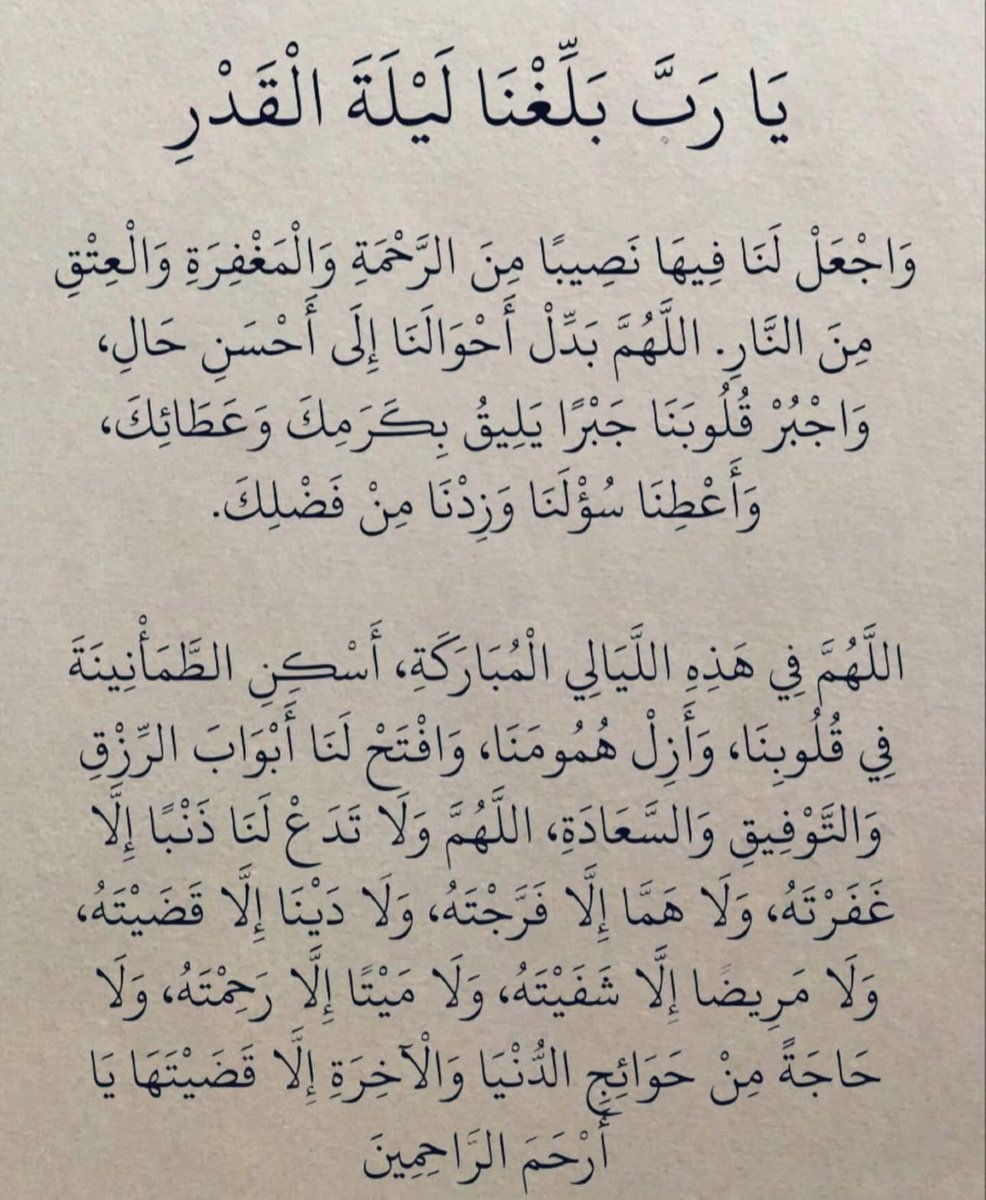 يَا رَبَّ بَلِّغْنَا لَيْلَةَ الْقَدْرِ
وَاجْعَلْ لَنَا فِيهَا نَصِيبًا مِنَ الرَّحْمَةِ وَالْمَغْفِرَةِ وَالْعِتْقِ
مِنَ النَّارِ. اللَّهُمَّ بَدِّلْ أَحْوَالَنَا إِلَى أَحْسَنِ حَالِ،
وَاجْبُرْ قُلُوبَنَا جَبْرًا يَلِيقُ بِكَرَمِكَ وَعَطَائِكَ،
وَأَعْطِنَا سُؤْلَنَا وَزِدْنَا مِنْ فَضْلِكَ.
اللَّهُمَّ فِي هَذِهِ اللَّيَالِي الْمُبَارَكَةِ، أَسْكِنِ الطَّمَأْنِينَةَ
فِي قُلُوبِنَا، وَأَزِلْ هُمُومَنَا، وَافْتَحْ لَنَا أَبْوَابَ الرِّزْقِ
وَالتَّوْفِيقِ وَالسَّعَادَةِ، اللَّهُمَّ وَلَا تَدَعْ لَنَا ذَنْبًا إِلَّا
غَفَرْتَهُ، وَلَا هَمَّا إِلَّا فَرَّجْتَهُ، وَلَا دَيْنَا إِلَّا قَضَيْتَهُ،
وَلَا مَرِيضًا إِلَّا شَفَيْتَهُ، وَلَا مَيْتًا إِلَّا رَحِمْتَهُ، وَلَا
حَاجَةً مِنْ حَوَائِجِ الدُّنْيَا وَالْآخِرَةِ إِلَّا قَضَيْتَهَا يَا
أَرْحَمَ الرَّاحِمِينَ